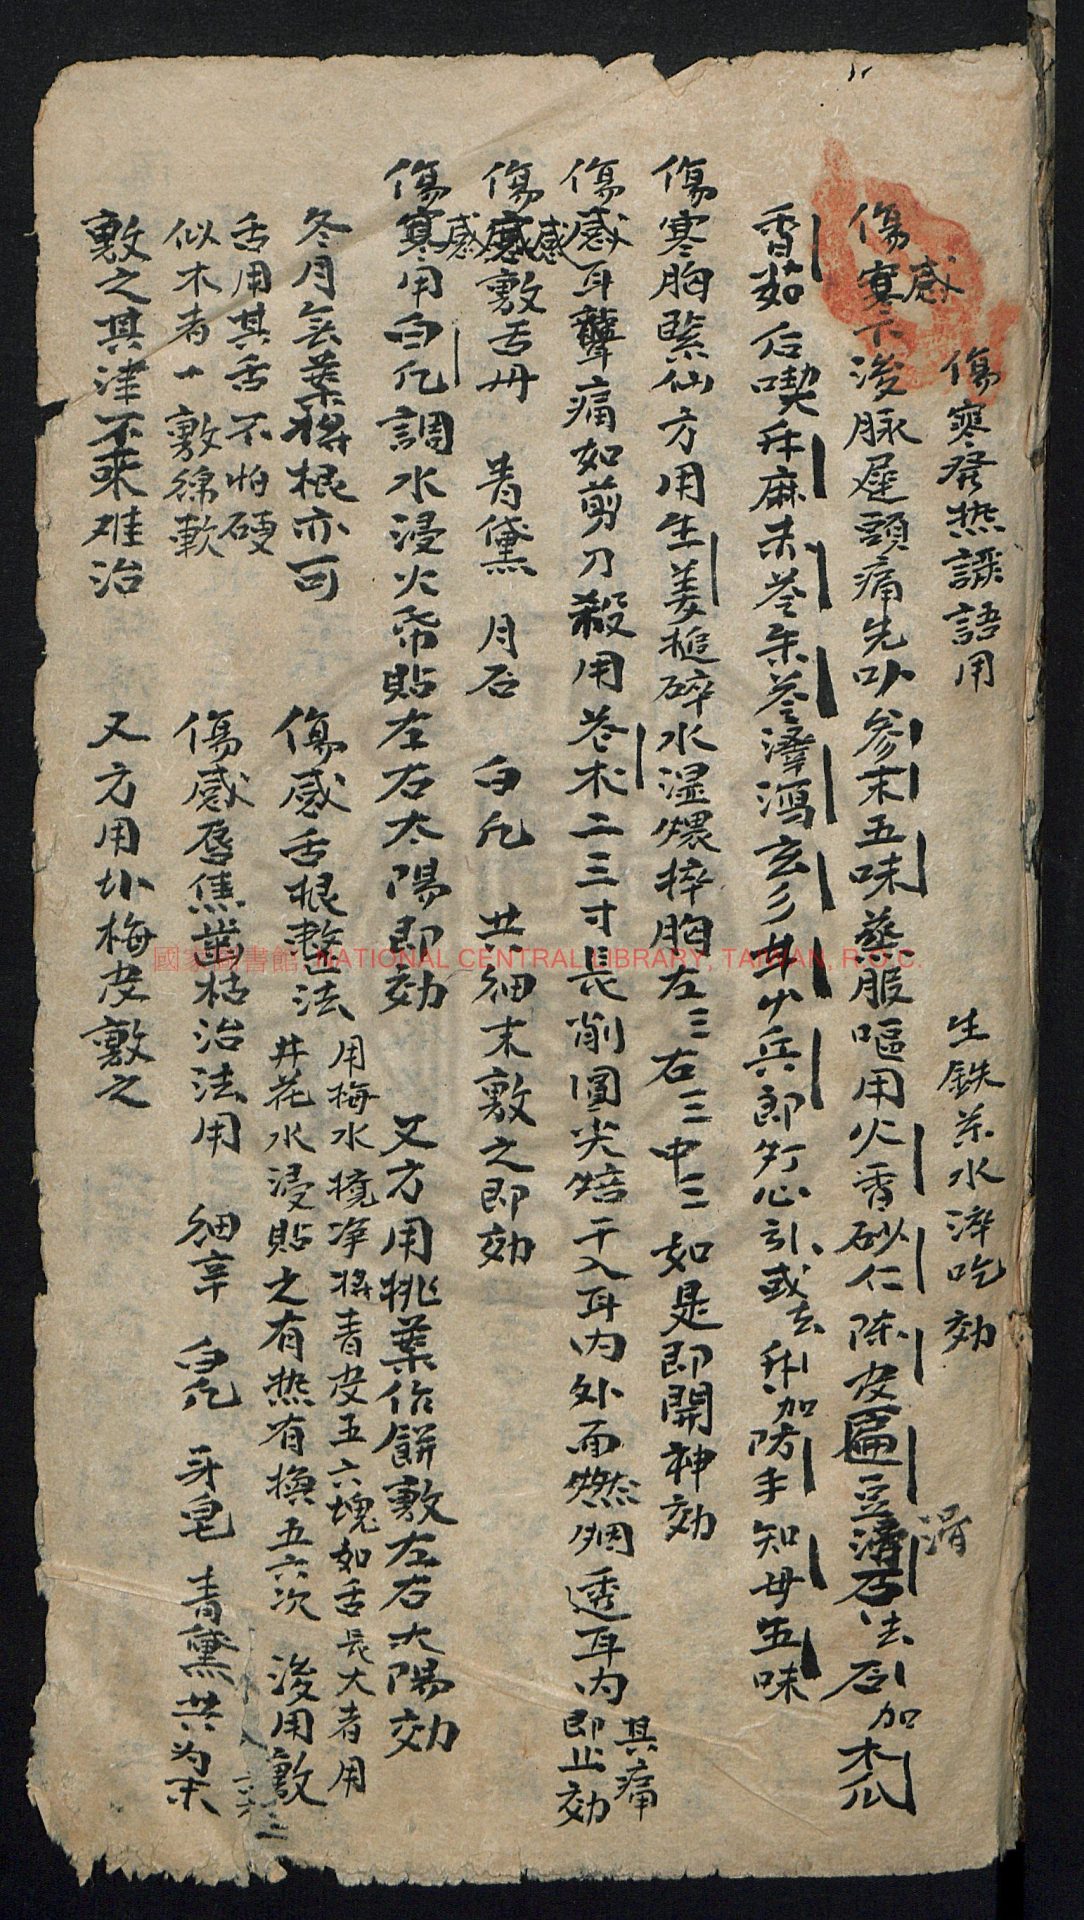 傷寒發热譟語用 生鉄荼水淬吃効
傷寒不浚脉遲頭痛先叺參末五味蒸服嘔用火香砂仁陈皮匾豆滑石法夏加木瓜
感
滑
香茹后喫升麻未苓朱苓澤瀉玄彡廾少兵郎灯心引或去升加防手知母五味
傷寒胸緊仙方用生姜槌碎水湿煨捽胸左三右三中三如是即開神効
傷感耳聾痛如剪刀殺用苍术二三寸長削圓尖焙干入耳内外面燃烟透耳内其痛即止効
傷感敷舌丹 青黛 月石 白凡 共細末敷之即効
感
傷寒用白凡調水浸火帋貼左右太陽即効 又方用桃葉作餅敷左右太陽効
感
冬月無葉将根亦可
傷感舌根整法 用梅水撓净将青皮五六塊如舌長大者用
井花水浸貼之有热有换五六次 浚用敷
舌用其舌不怕硬
似木者一敷綿軟
傷感唇焦齒枯治法用 細辛 白凡 牙皂 青黛共为末
敷之其津不來难治
又方用叺梅皮敷之
國家圖書館, NATIONAL CENTRAL LIBRARY, TAIWAN, R.O.C.